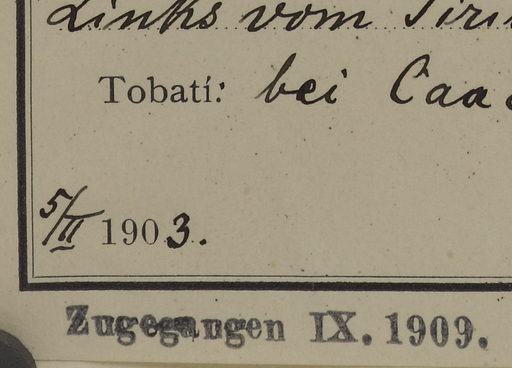 Links vom
Tobatí: bei
5/II 1903.
Zugegangen IX. 1909.